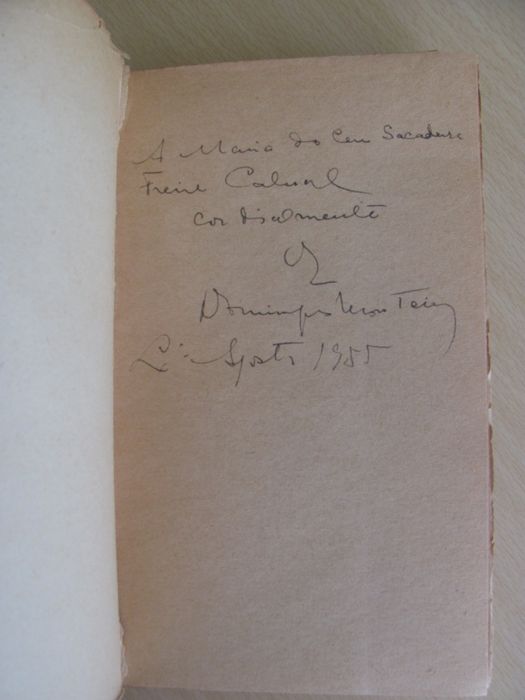 A Maria do Ceu Sacadura
Freire Cabral
cordialmente
Of
Domingos Monteiro
Lx. Agosto 1955